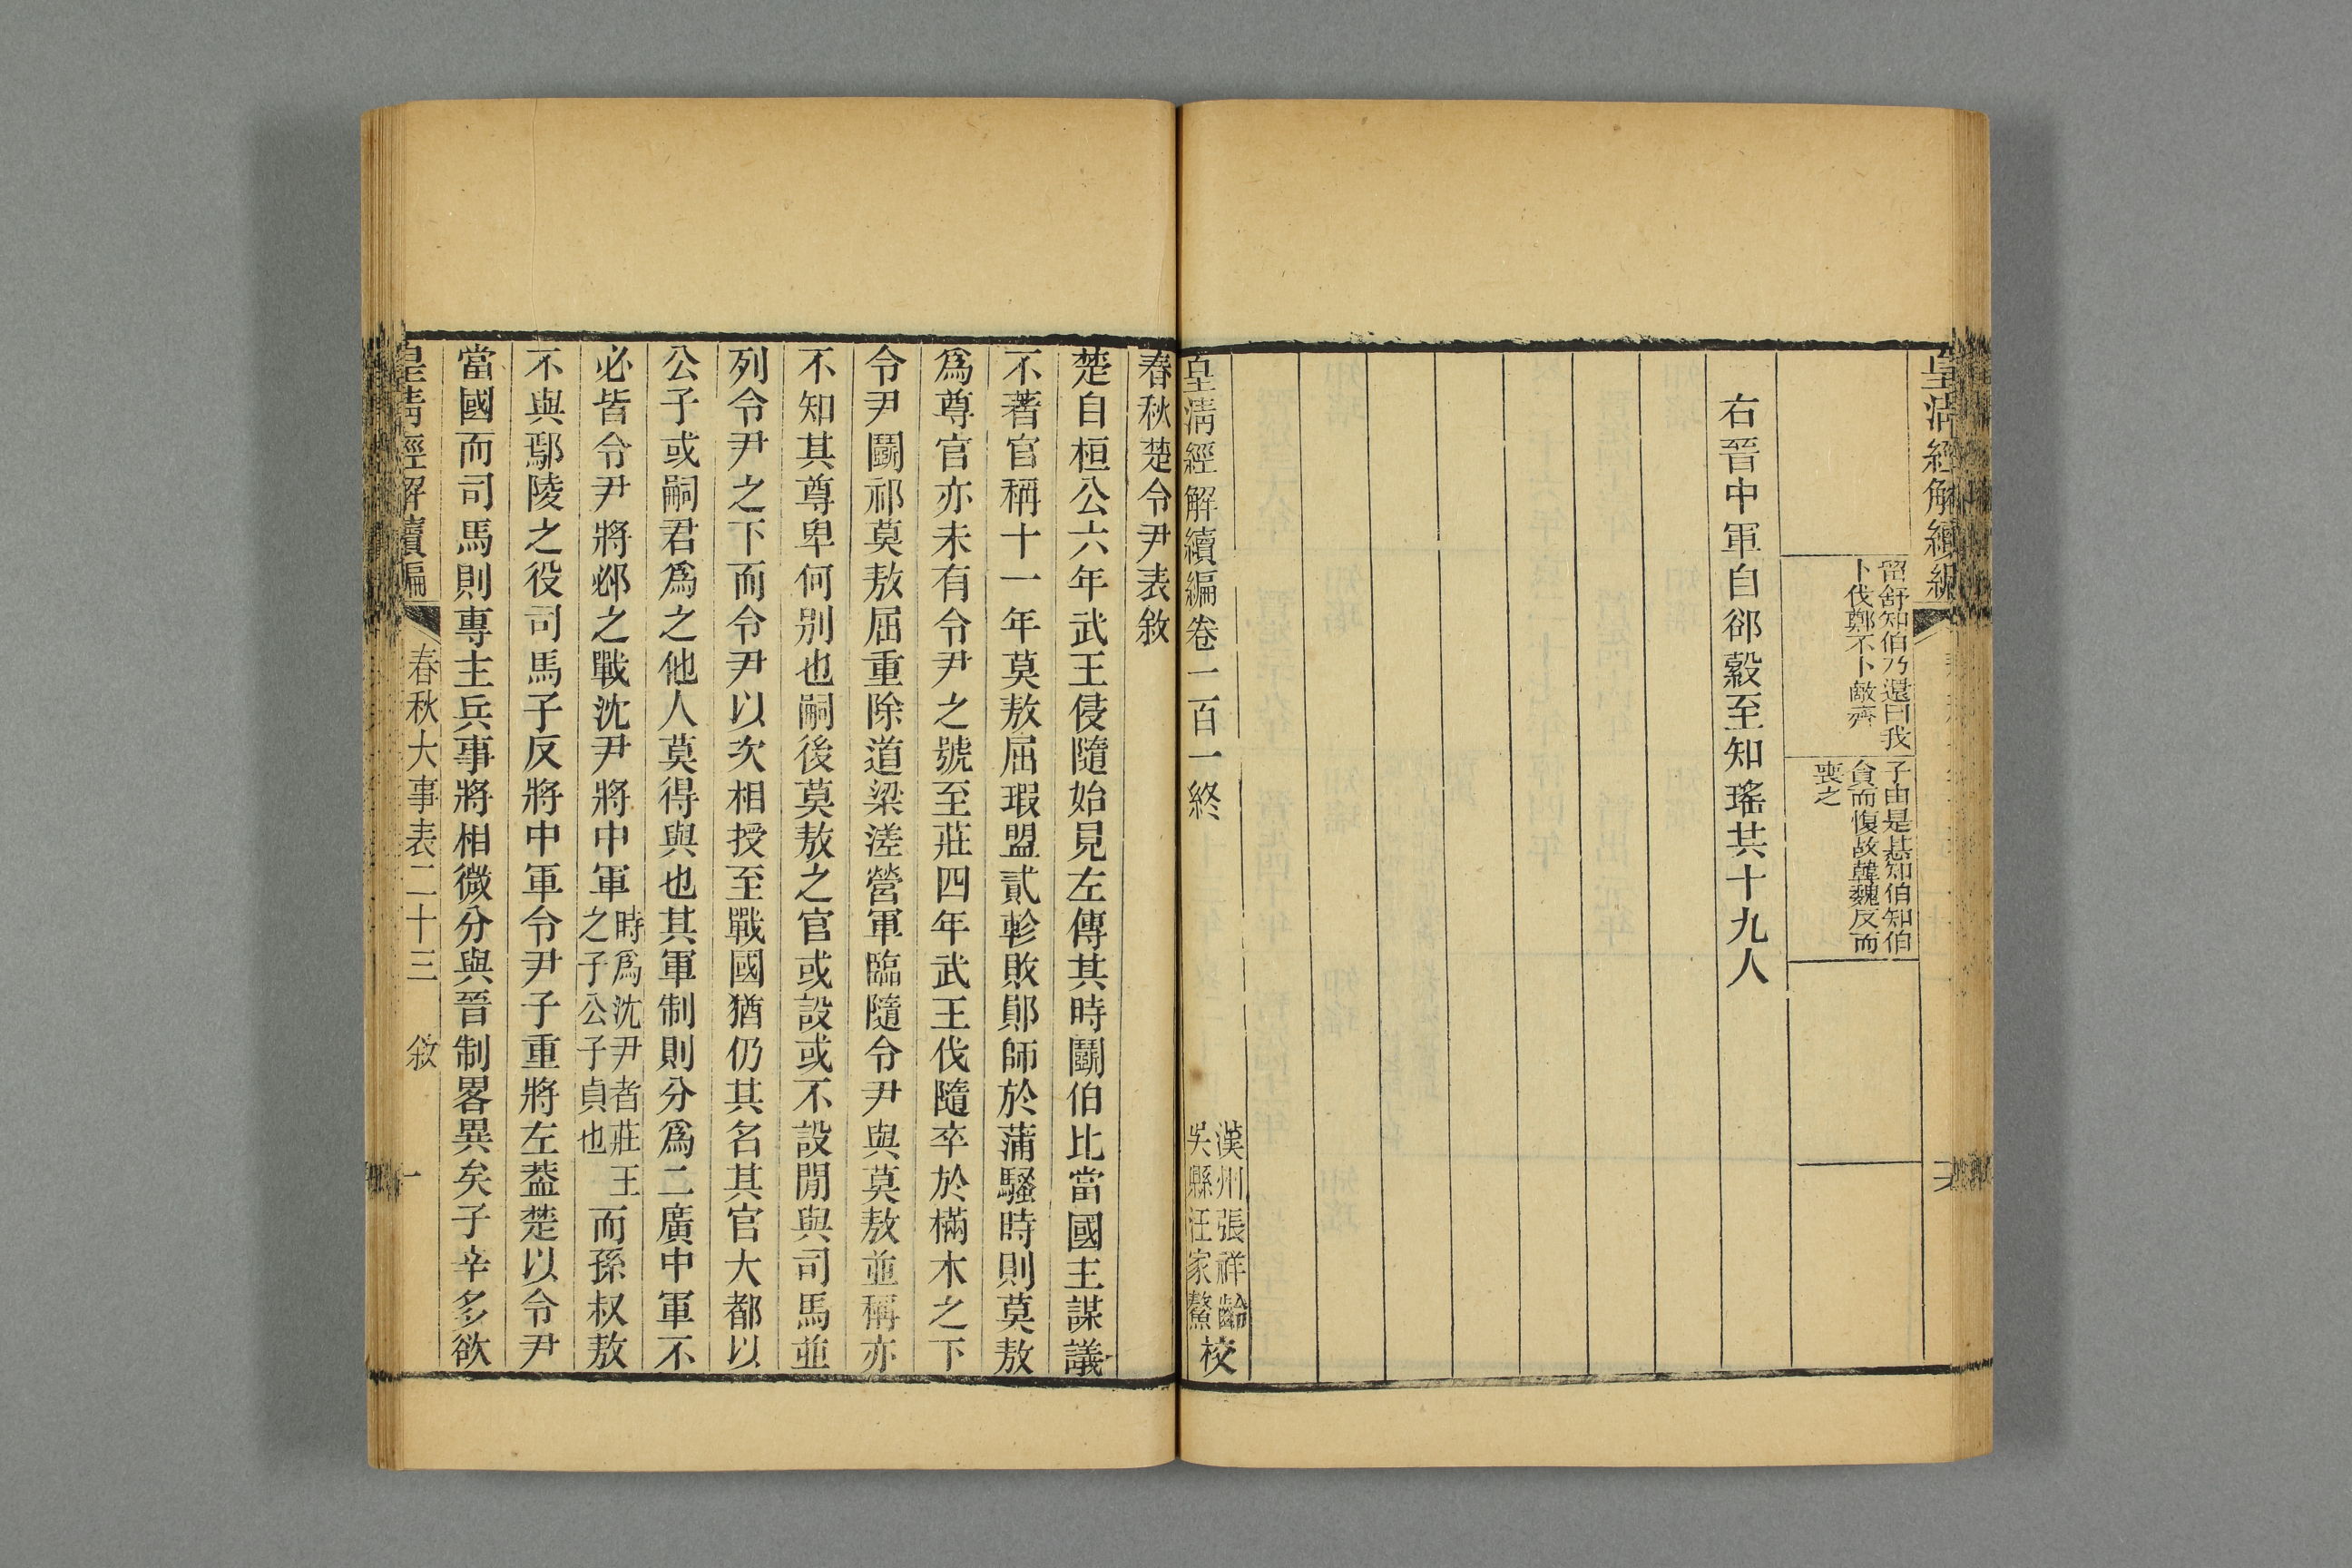 皇清經解續編
留舒知伯乃還曰我
卜伐鄭不卜敵齊
子由是惎知伯知伯
貪而愎故韓魏反而
喪之
右晉中軍自郤縠至知瑤共十九人
皇清經解續編卷一百一終
漢州張祥齡
吳縣汪家鰲
校
春秋楚令尹表敘
楚自桓公六年武王侵隨始見左傳其時鬬伯比當國主謀議
不著官稱十一年莫敖屈瑕盟貳軫敗鄖師於蒲騷時則莫敖
爲尊官亦未有令尹之號至莊四年武王伐隨卒於樠木之下
令尹鬬祁莫敖屈重除道梁溠營軍臨隨令尹與莫敖並稱亦
不知其尊卑何別也嗣後莫敖之官或設或不設閒與司馬並
列令尹之下而令尹以次相授至戰國猶仍其名其官大都以
公子或嗣君爲之他人莫得與也其軍制則分爲二廣中軍不
必皆令尹將邲之戰沈尹將中軍時爲沈尹者莊王之子公子貞也而孫叔敖
不與鄢陵之役司馬子反將中軍令尹子重將左葢楚以令尹
當國而司馬則專主兵事將相微分與晉制畧異矣子辛多欲
皇清經解續編
春秋大事表二十三
敘
一